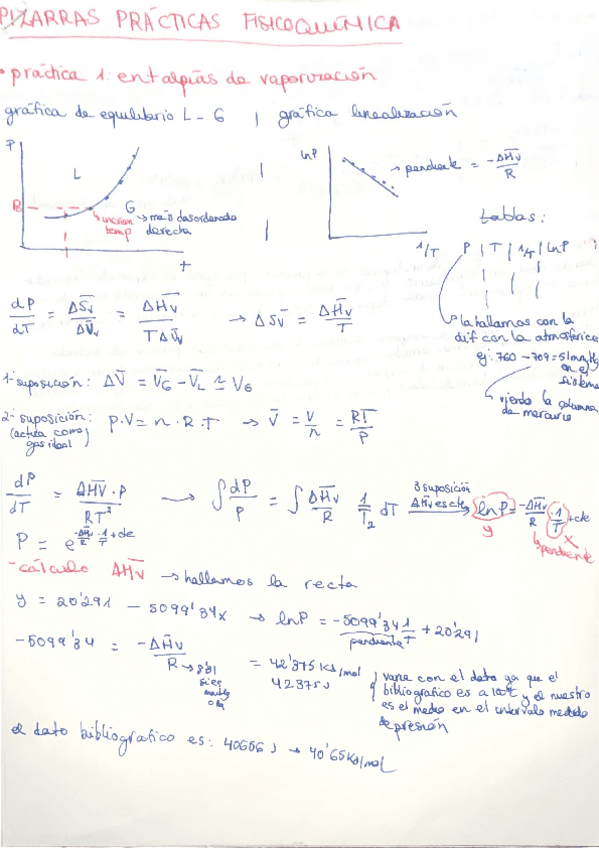 PIZARRAS PRÁCTICAS FISICOQUÍMICA
• práctica 1: entalpías de vaporización
gráfica de equilibrio L - G | gráfica linealización
P
L
G
→ increm temp
→ más desordenado derecha
T
lnP
→ pendiente = -ΔH̄v/R
1/T
tablas:
P | T | 1/T | lnP
dP/dT = ΔS̄v/ΔV̄v = ΔH̄v/TΔV̄v → ΔS̄v = ΔH̄v/T
la hallamos con la
dif con la atmosférica
ej: 760 - 709 = 51mmHg
en el
sistema
viendo la columna
de mercurio
1ª suposición: ΔV̄ = V̄G - V̄L ≃ VG
2ª suposición: P·V = n·R·T → V̄ = V/n = RT/P
(actúa como
gas ideal)
dP/dT = ΔH̄v·P/RT² → ∫dP/P = ∫ΔH̄v/R 1/T2 dT
3 suposición
ΔH̄v es cte
lnP = -ΔH̄v/R · 1/T + cte
y
x
pendiente
P = e^-ΔH̄v/R · 1/T + cte
- cálculo ΔH̄v → hallamos la recta
y = 20'291 - 5099'34x → lnP = -5099'34 1/T + 20'291
pendiente
-5099'34 = -ΔH̄v/R
= 42'375 KJ/mol
42375J
varía con el dato ya que el
bibliográfico es a 100ºC y el nuestro
es el medio en el intervalo medido
de presión
el dato bibliográfico es: 40656 J → 40'65KJ/mol